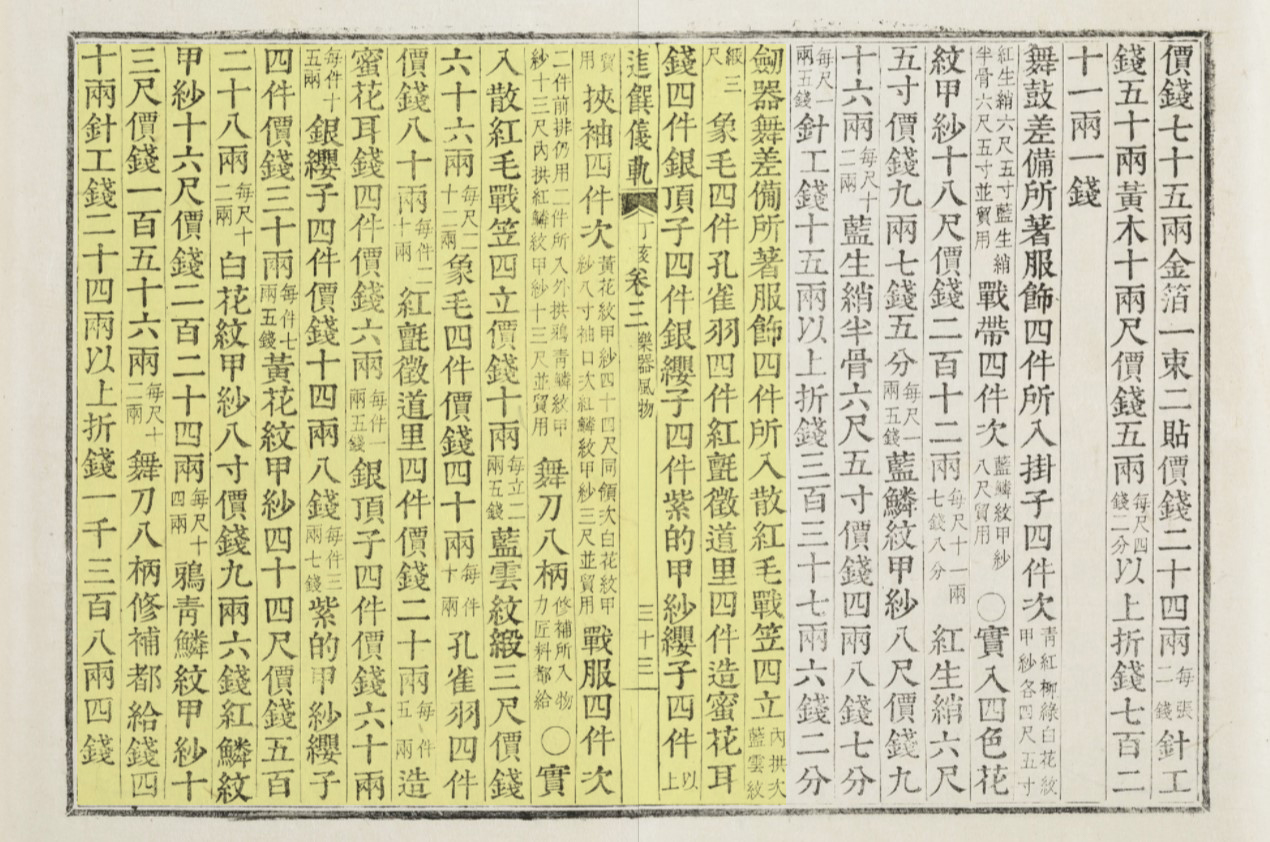 價錢七十五兩金箔一束二貼價錢二十四兩每張二錢針工
錢五十兩黃木十兩尺價錢五兩每尺四錢二分以上折錢七百二
十一兩一錢
舞鼓差備所著服飾四件所入掛子四件次青紅柳綠白花紋甲紗各四尺五寸
紅生綃六尺五寸藍生綃半骨六尺五寸並貿用戰帶四件次藍鱗紋甲紗八尺貿用○實入四色花
紋甲紗十八尺價錢二百十二兩每尺十一兩七錢八分紅生綃六尺
五寸價錢九兩七錢五分每尺一兩五錢藍鱗紋甲紗八尺價錢九
十六兩每尺十二兩藍生綃半骨六尺五寸價錢四兩八錢七分
每尺一兩五錢針工錢十五兩以上折錢三百三十七兩六錢二分
劒器舞差備所著服飾四件所入散紅毛戰笠四立內拱次藍雲紋
緞三尺象毛四件孔雀羽四件紅氈徵道里四件造蜜花耳
錢四件銀頂子四件銀纓子四件紫的甲紗纓子四件以上
進饌儀軌 丁亥 卷三 樂器風物 三十三
貿用挾袖四件次黃花紋甲紗四十四尺同領次白花紋甲紗八寸袖口次紅鱗紋甲紗三尺並貿用戰服四件次
二件前排仍用二件所入外拱鴉靑鱗紋甲紗十三尺內拱紅鱗紋甲紗十三尺並貿用舞刀八柄修補所入物力匠料都給○實
入散紅毛戰笠四立價錢十兩每立二兩五錢藍雲紋緞三尺價錢
六十六兩每尺二十二兩象毛四件價錢四十兩每件十兩孔雀羽四件
價錢八十兩每件二十兩紅氈徵道里四件價錢二十兩每件五兩造
蜜花耳錢四件價錢六兩每件一兩五錢銀頂子四件價錢六十兩
每件十五兩銀纓子四件價錢十四兩八錢每件三兩七錢紫的甲紗纓子
四件價錢三十兩每件七兩五錢黃花紋甲紗四十四尺價錢五百
二十八兩每尺十二兩白花紋甲紗八寸價錢九兩六錢紅鱗紋
甲紗十六尺價錢二百二十四兩每尺十四兩鴉靑鱗紋甲紗十
三尺價錢一百五十六兩每尺十二兩舞刀八柄修補都給錢四
十兩針工錢二十四兩以上折錢一千三百八兩四錢